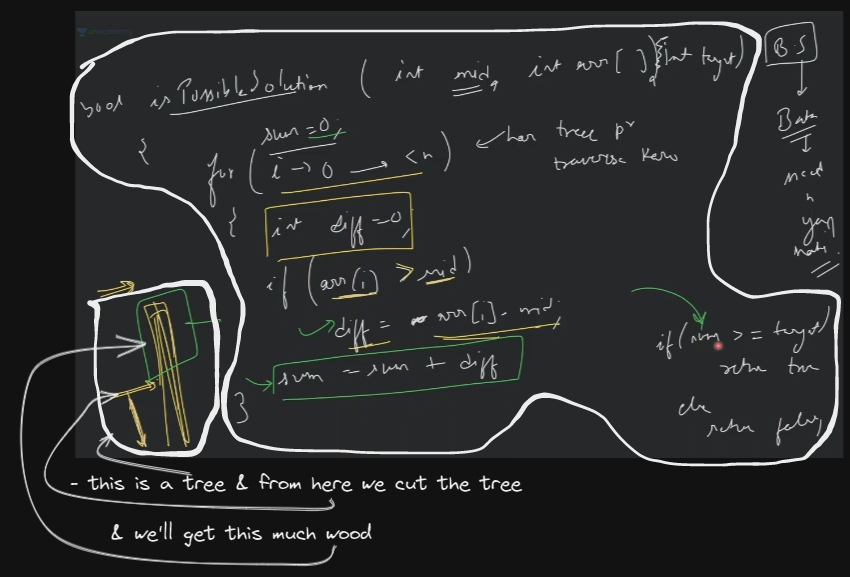 bool isPossibleSolution ( int mid, int arr [ ], int target)
{
sum = 0;
for ( i → 0 → < n )
har tree pr
traverse karo
{
int diff = 0;
if ( arr[i] > mid )
diff = arr[i] - mid;
sum = sum + diff
}
if (sum >= target)
return true
else
return false;
B.S
Bata
need
n
yay
- this is a tree & from here we cut the tree
& we'll get this much wood